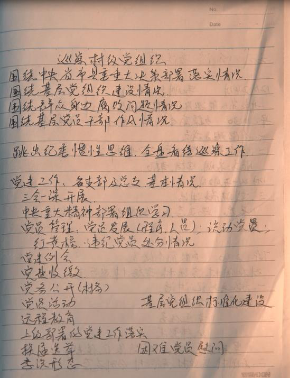 No.
Date
巡察村级党组织
围绕中央省市县重大决策部署落实情况
围绕基层党组织建设情况
围绕群众身边腐败问题情况
围绕基层党员干部作风情况
跳出纪委惯性思维,全盘看待巡察工作
党建工作、各支部及总支基本情况
三会一课开展
中央重大精神部署组织学习
党员管理,党员发展(程序、人员),流动党员,
红黄榜,违纪党员处分情况
党建例会
党费收缴
党务公开(村务)
党员活动 基层党组织标准化建设
远程教育
上级部署的党建工作落实
换届选举 困难党员慰问
意识形态